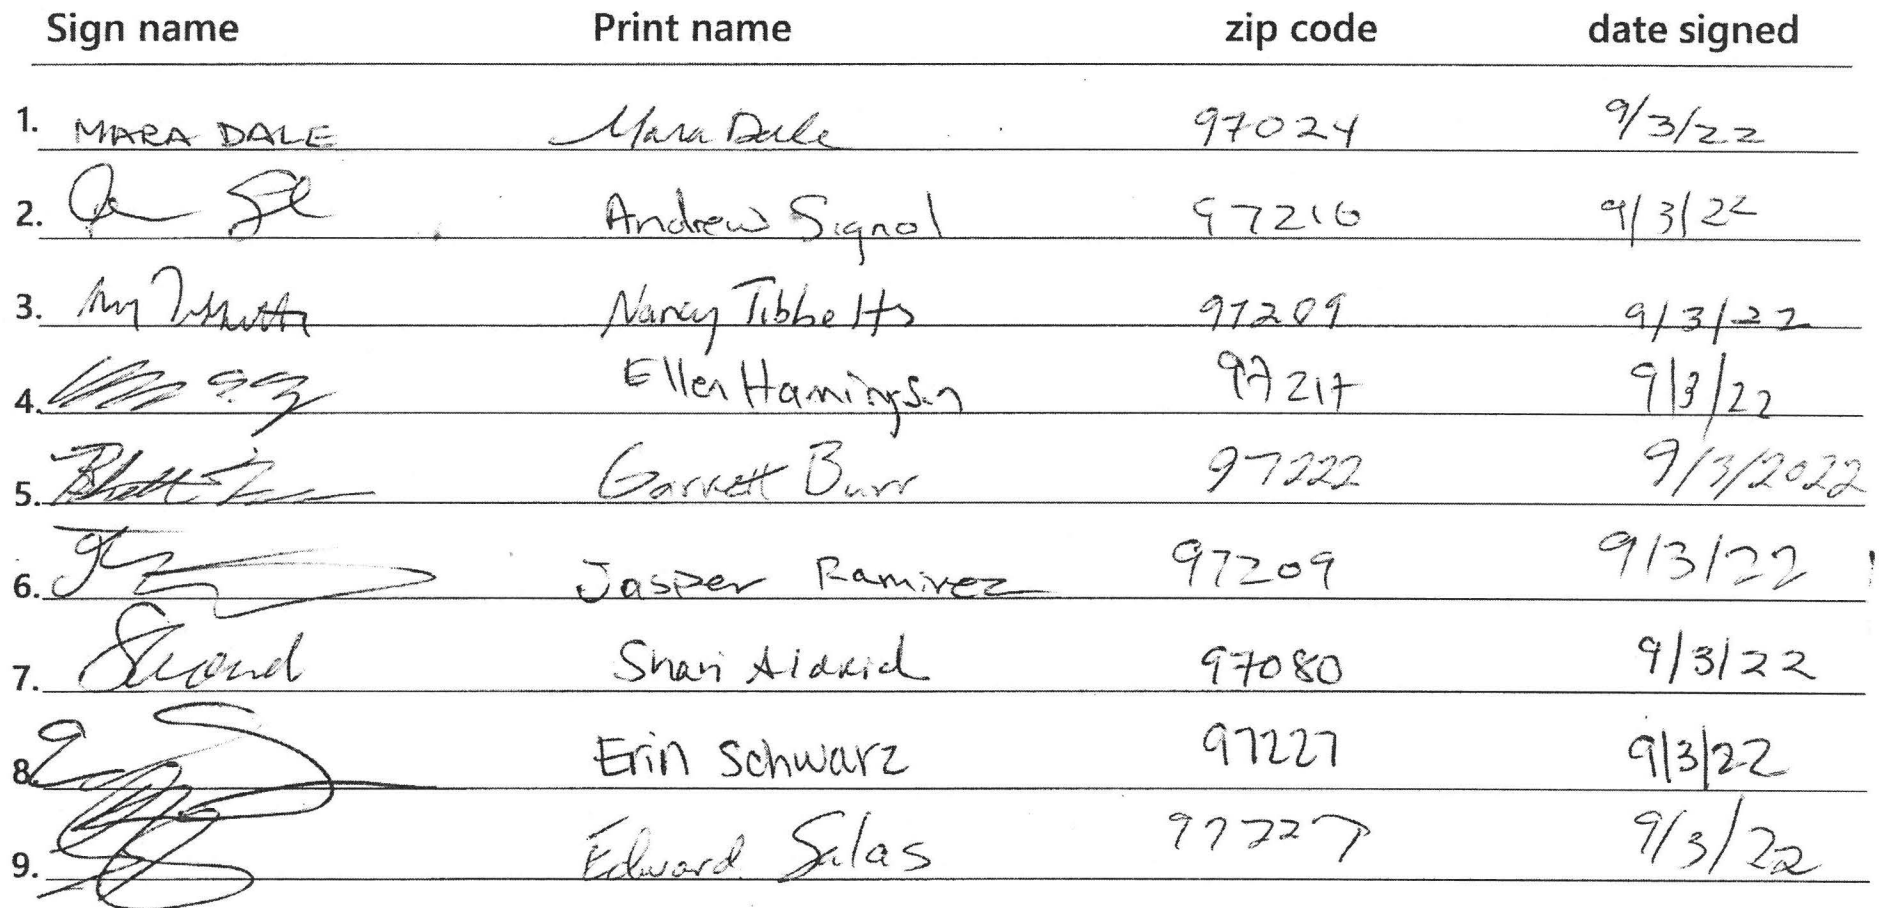 Sign name Print name zip code date signed
1. MARA DALE Mara Dale 97024 9/3/22
2. Andrew Signol 97216 9/3/22
3. Nancy Tibbetts 97209 9/3/22
4. Ellen Hamingson 97217 9/3/22
5. Garrett Burr 97222 9/3/2022
6. Jasper Ramirez 97209 9/3/22
7. Shari 97080 9/3/22
8. Erin Schwarz 97227 9/3/22
9. Edward Salas 97227 9/3/22